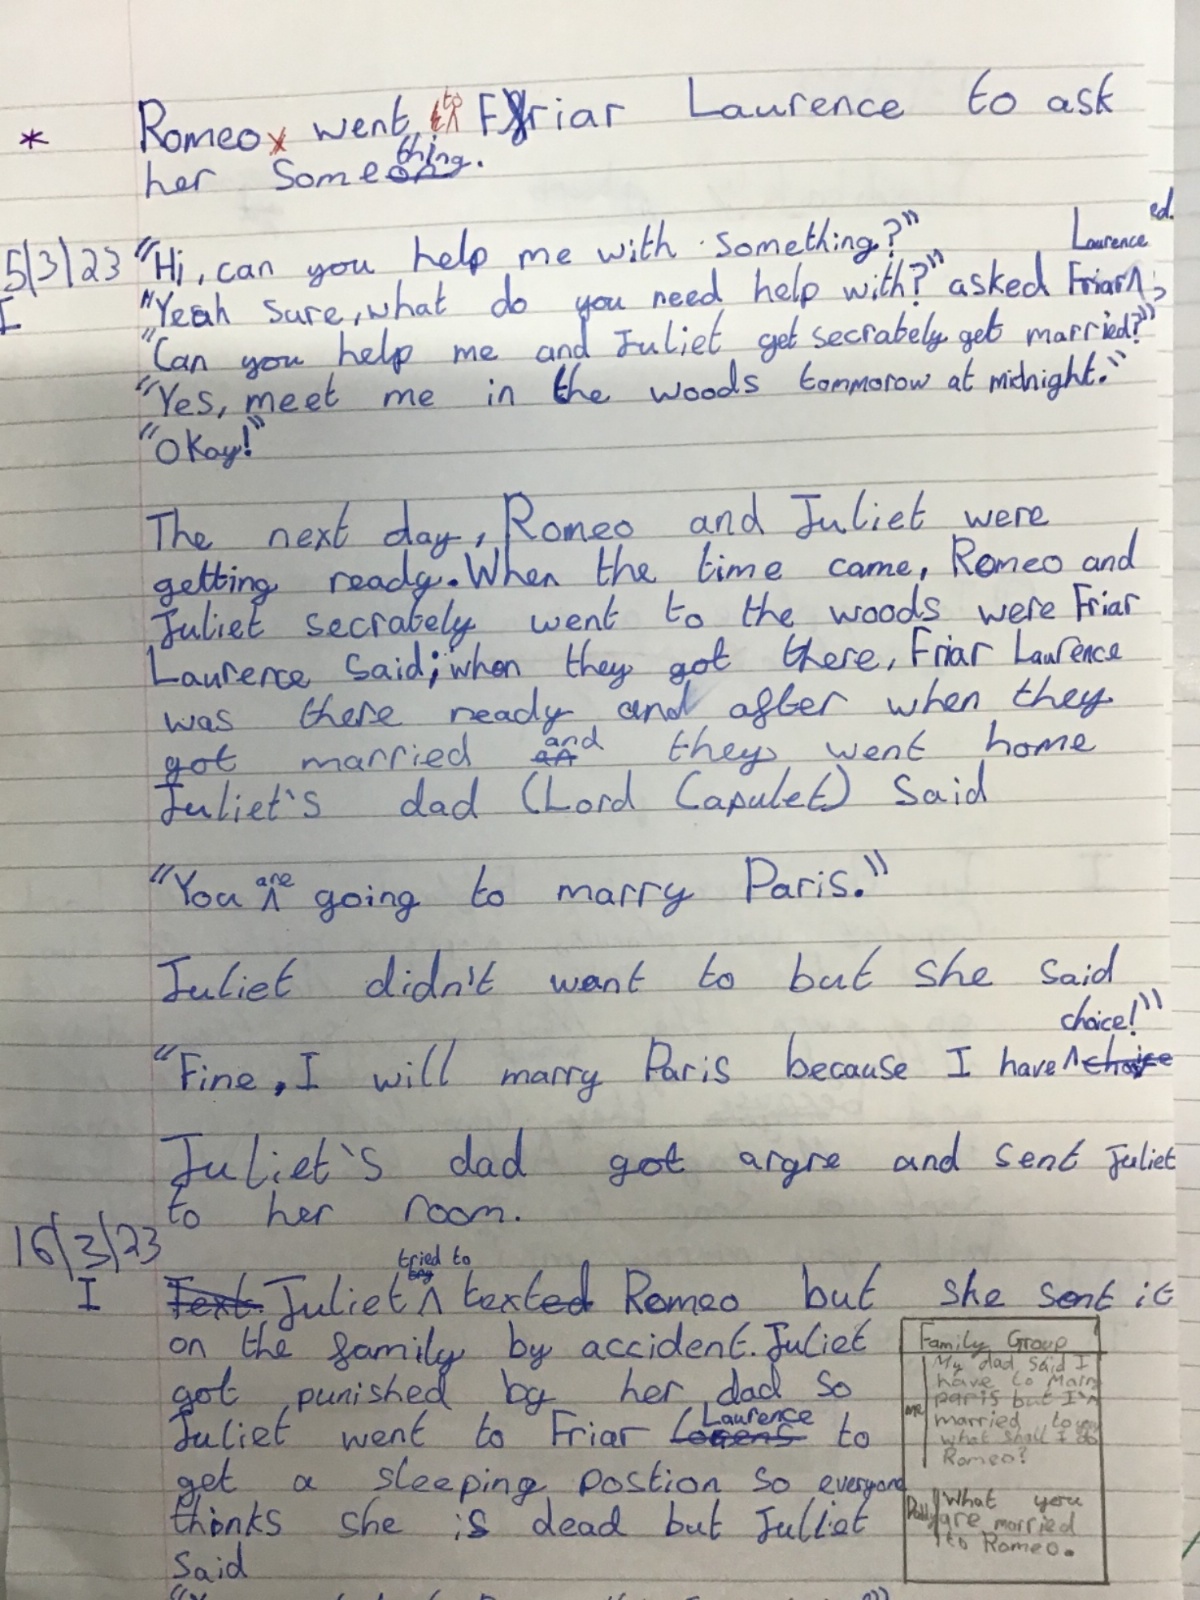 * Romeo went to Friar Laurence to ask
her something.
5/3/23 "Hi, can you help me with something?"
I "Yeah sure, what do you need help with?" asked Friar Laurence;
ed.
"Can you help me and Juliet get secrately get married?"
"Yes, meet me in the woods tommorow at midnight."
"Okay!"
The next day, Romeo and Juliet were
getting ready. When the time came, Romeo and
Juliet secrately went to the woods were Friar
Laurence said; when they got there, Friar Laurence
was there ready and after when they
got married and they went home
Juliet's dad (Lord Capulet) said
"You are going to marry Paris."
Juliet didn't want to but she said
"Fine, I will marry Paris because I have choice!"
Juliet's dad got argre and sent Juliet
to her room.
16/3/23
I Juliet tried to text Romeo but she sent it
on the family by accident. Juliet
got punished by her dad so
Juliet went to Friar Laurence to
get a sleeping postion so everyone
thinks she is dead but Juliet
said
Family Group
me My dad said I
have to marry
paris but I'm
married to you
what shall I do
Romeo?
Daddy What you
are married
to Romeo.